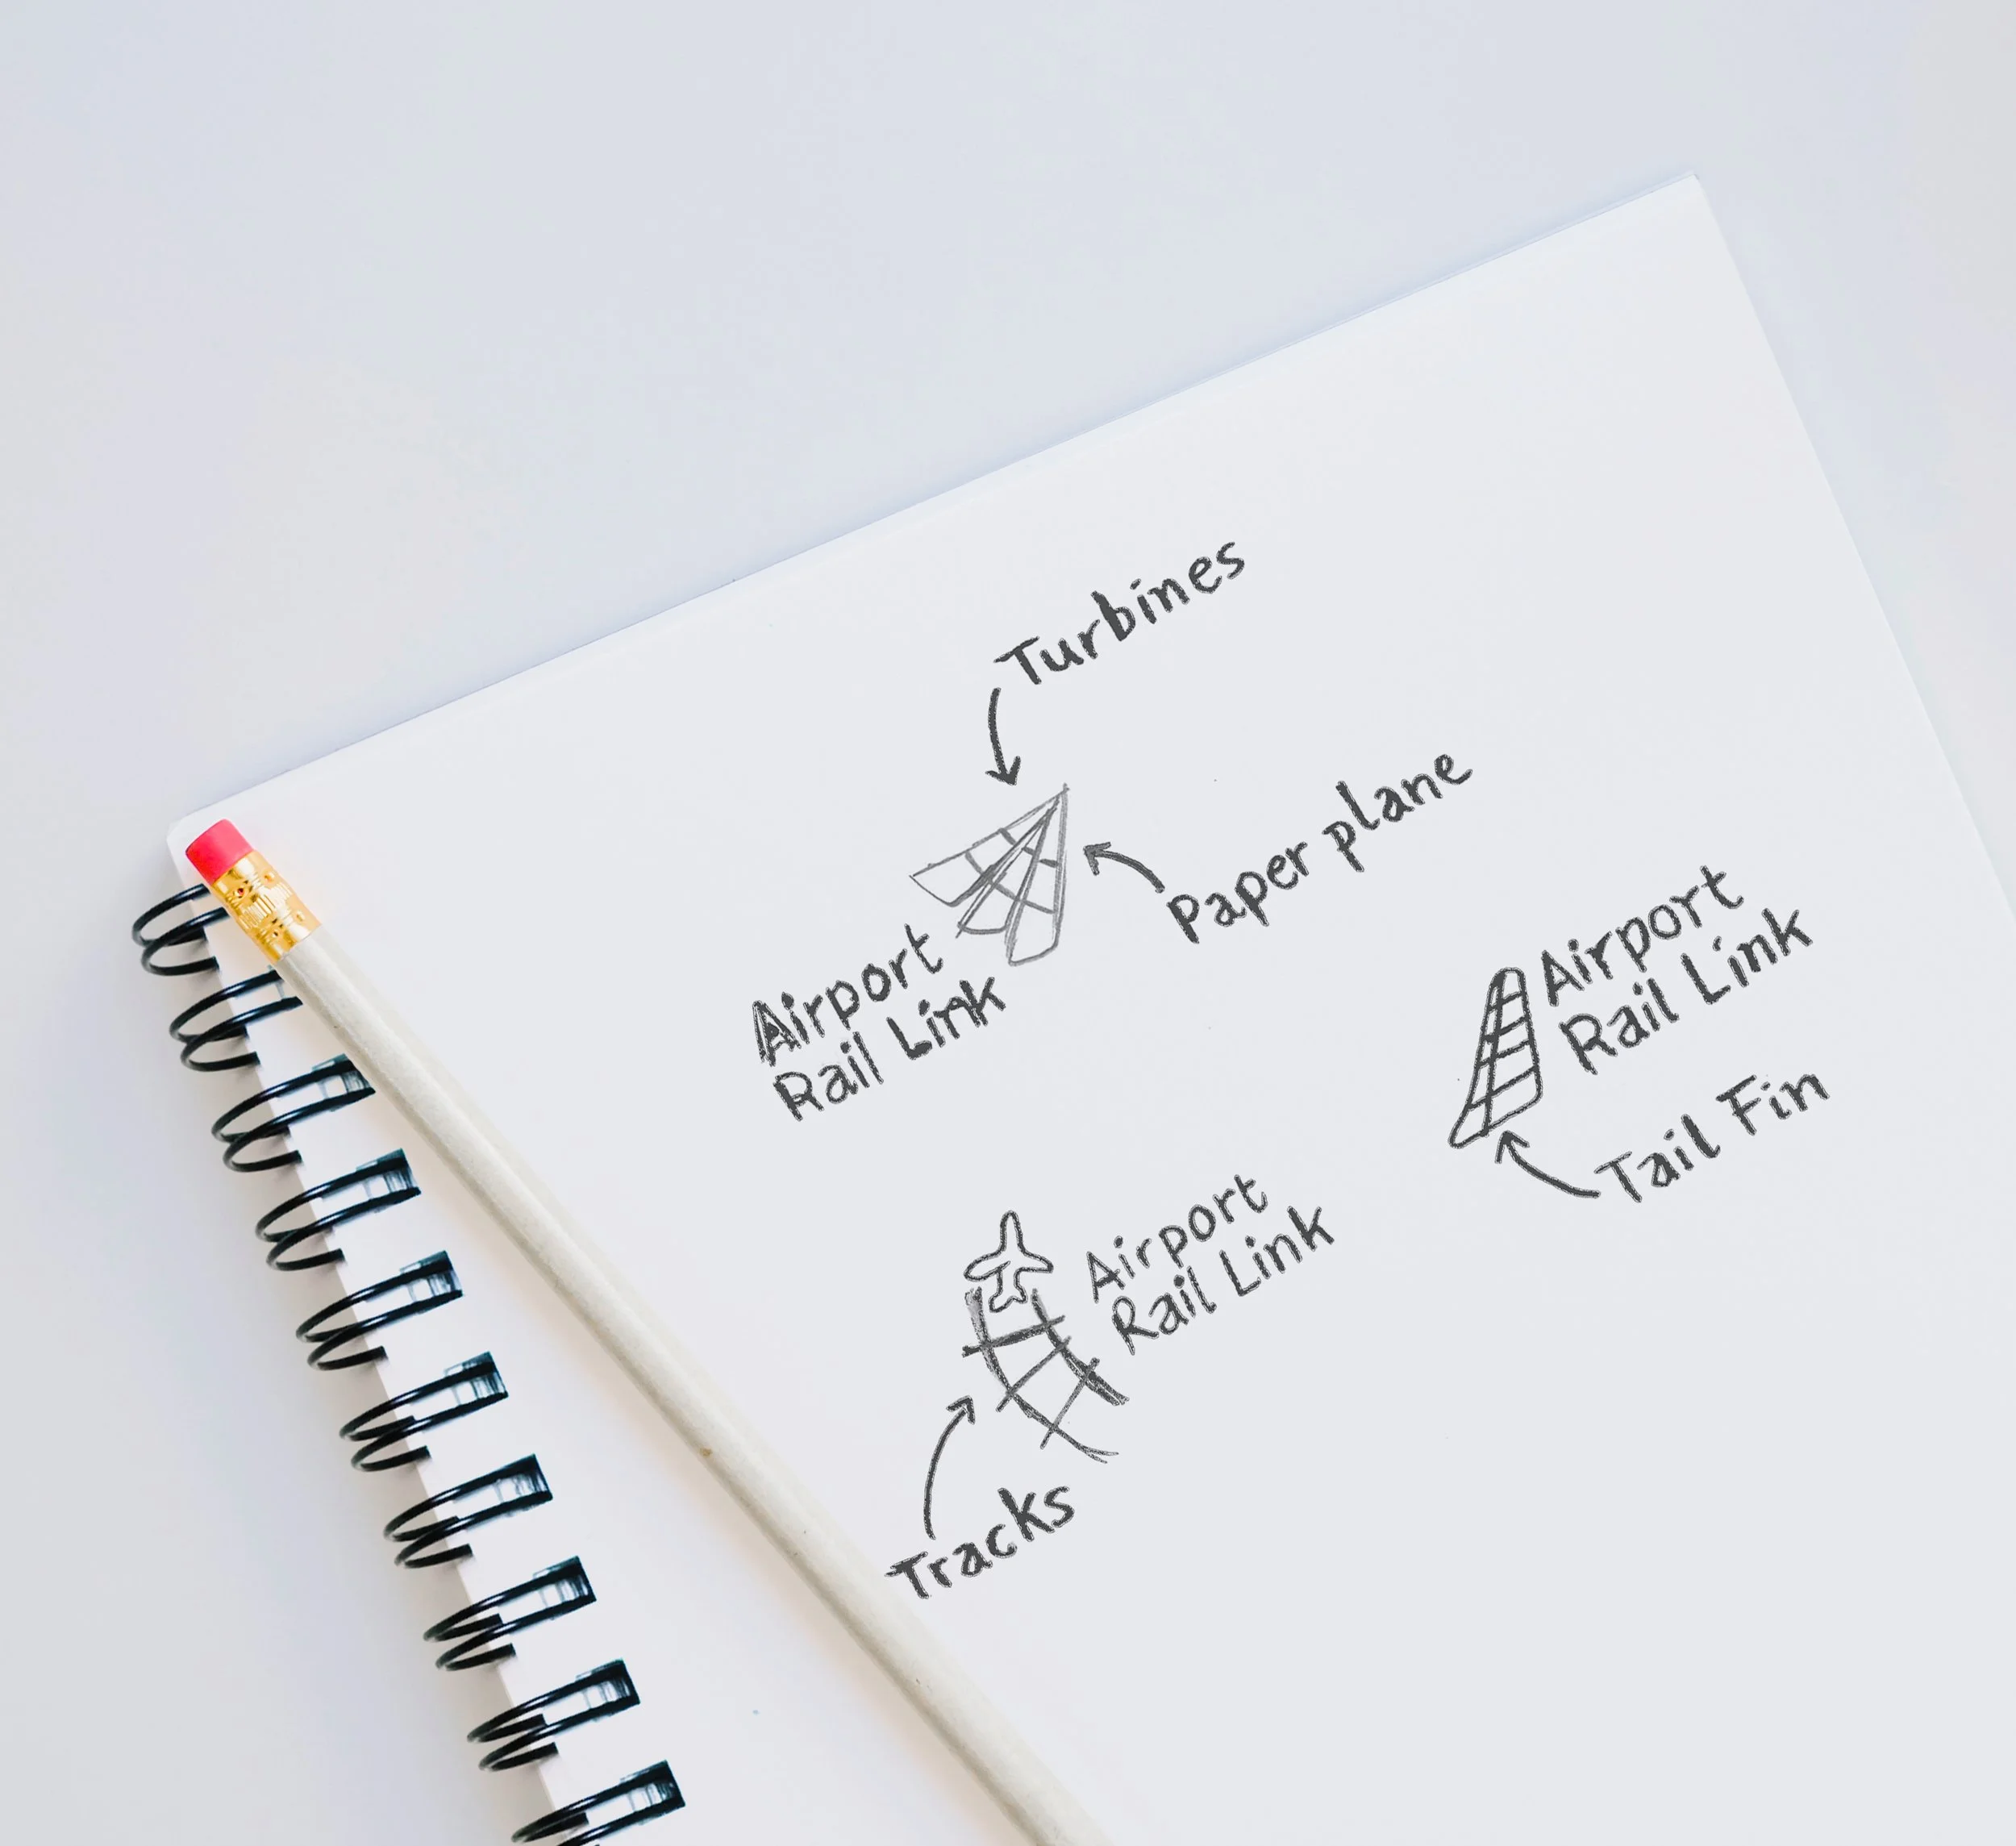 Turbines
Paper plane
Airport
Rail Link
Airport
Rail Link
Tail Fin
Airport
Rail Link
Tracks